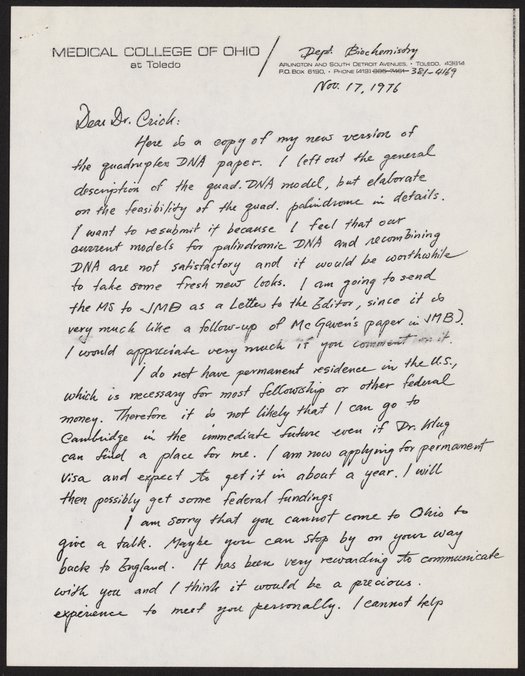 MEDICAL COLLEGE OF OHIO
at Toledo
Dept. Biochemistry
ARLINGTON AND SOUTH DETROIT AVENUES, • TOLEDO, 43614
P.O. BOX 6190, • PHONE (419) 381-4169
Nov. 17, 1976
Dear Dr. Crick:
Here is a copy of my new version of
the quadruplex DNA paper. I left out the general
description of the quad. DNA model, but elaborate
on the feasibility of the quad. palindrome in details.
I want to resubmit it because I feel that our
current models for palindromic DNA and recombining
DNA are not satisfactory and it would be worthwhile
to take some fresh new looks. I am going to send
the MS to JMB as a Letter to the Editor, since it is
very much like a follow-up of McGavin's paper in JMB).
I would appreciate very much if you comment on it.
I do not have permanent residence in the U.S.,
which is necessary for most fellowship or other federal
money. Therefore it is not likely that I can go to
Cambridge in the immediate future even if Dr. Klug
can find a place for me. I am now applying for permanent
visa and expect to get it in about a year. I will
then possibly get some federal fundings
I am sorry that you cannot come to Ohio to
give a talk. Maybe you can stop by on your way
back to England. It has been very rewarding to communicate
with you and I think it would be a precious
experience to meet you personally. I cannot help